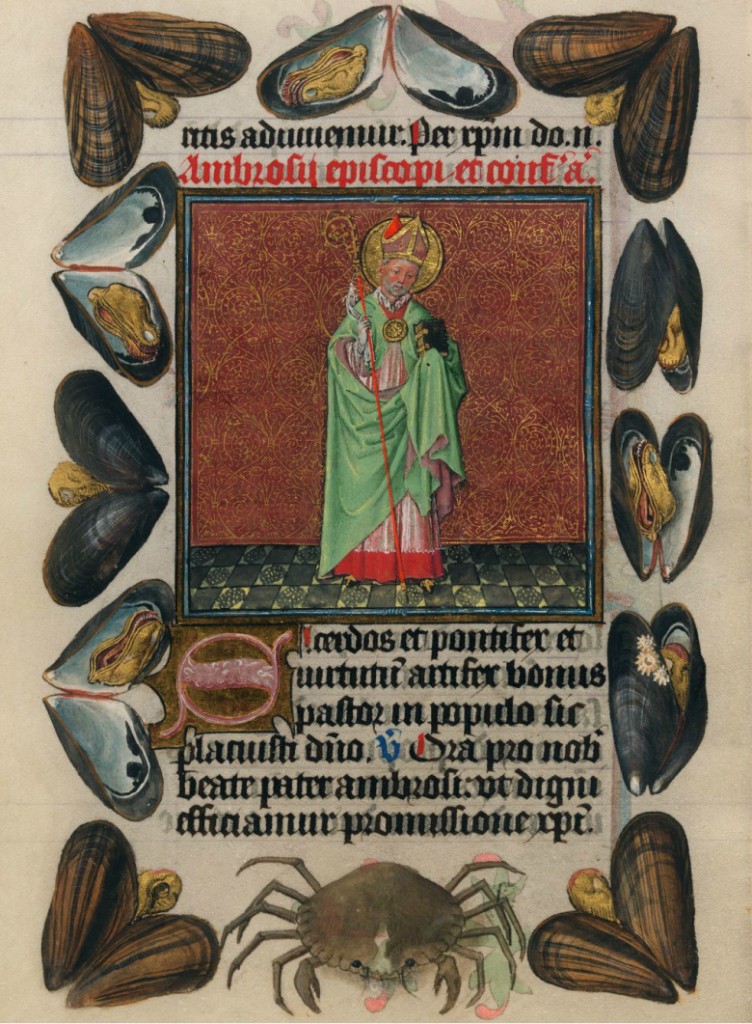 ritis adiuuemur. Per xp̄m do.n.
Ambrosij episcopi et conf̄. a̅.
Sacerdos et pontifex et
uirtutū artifex bonus
pastor in populo sic
placuisti dn̄o. V̄ Ora pro nob̄
beate pater ambrosi. vt digni
efficiamur promissione xp̄i.